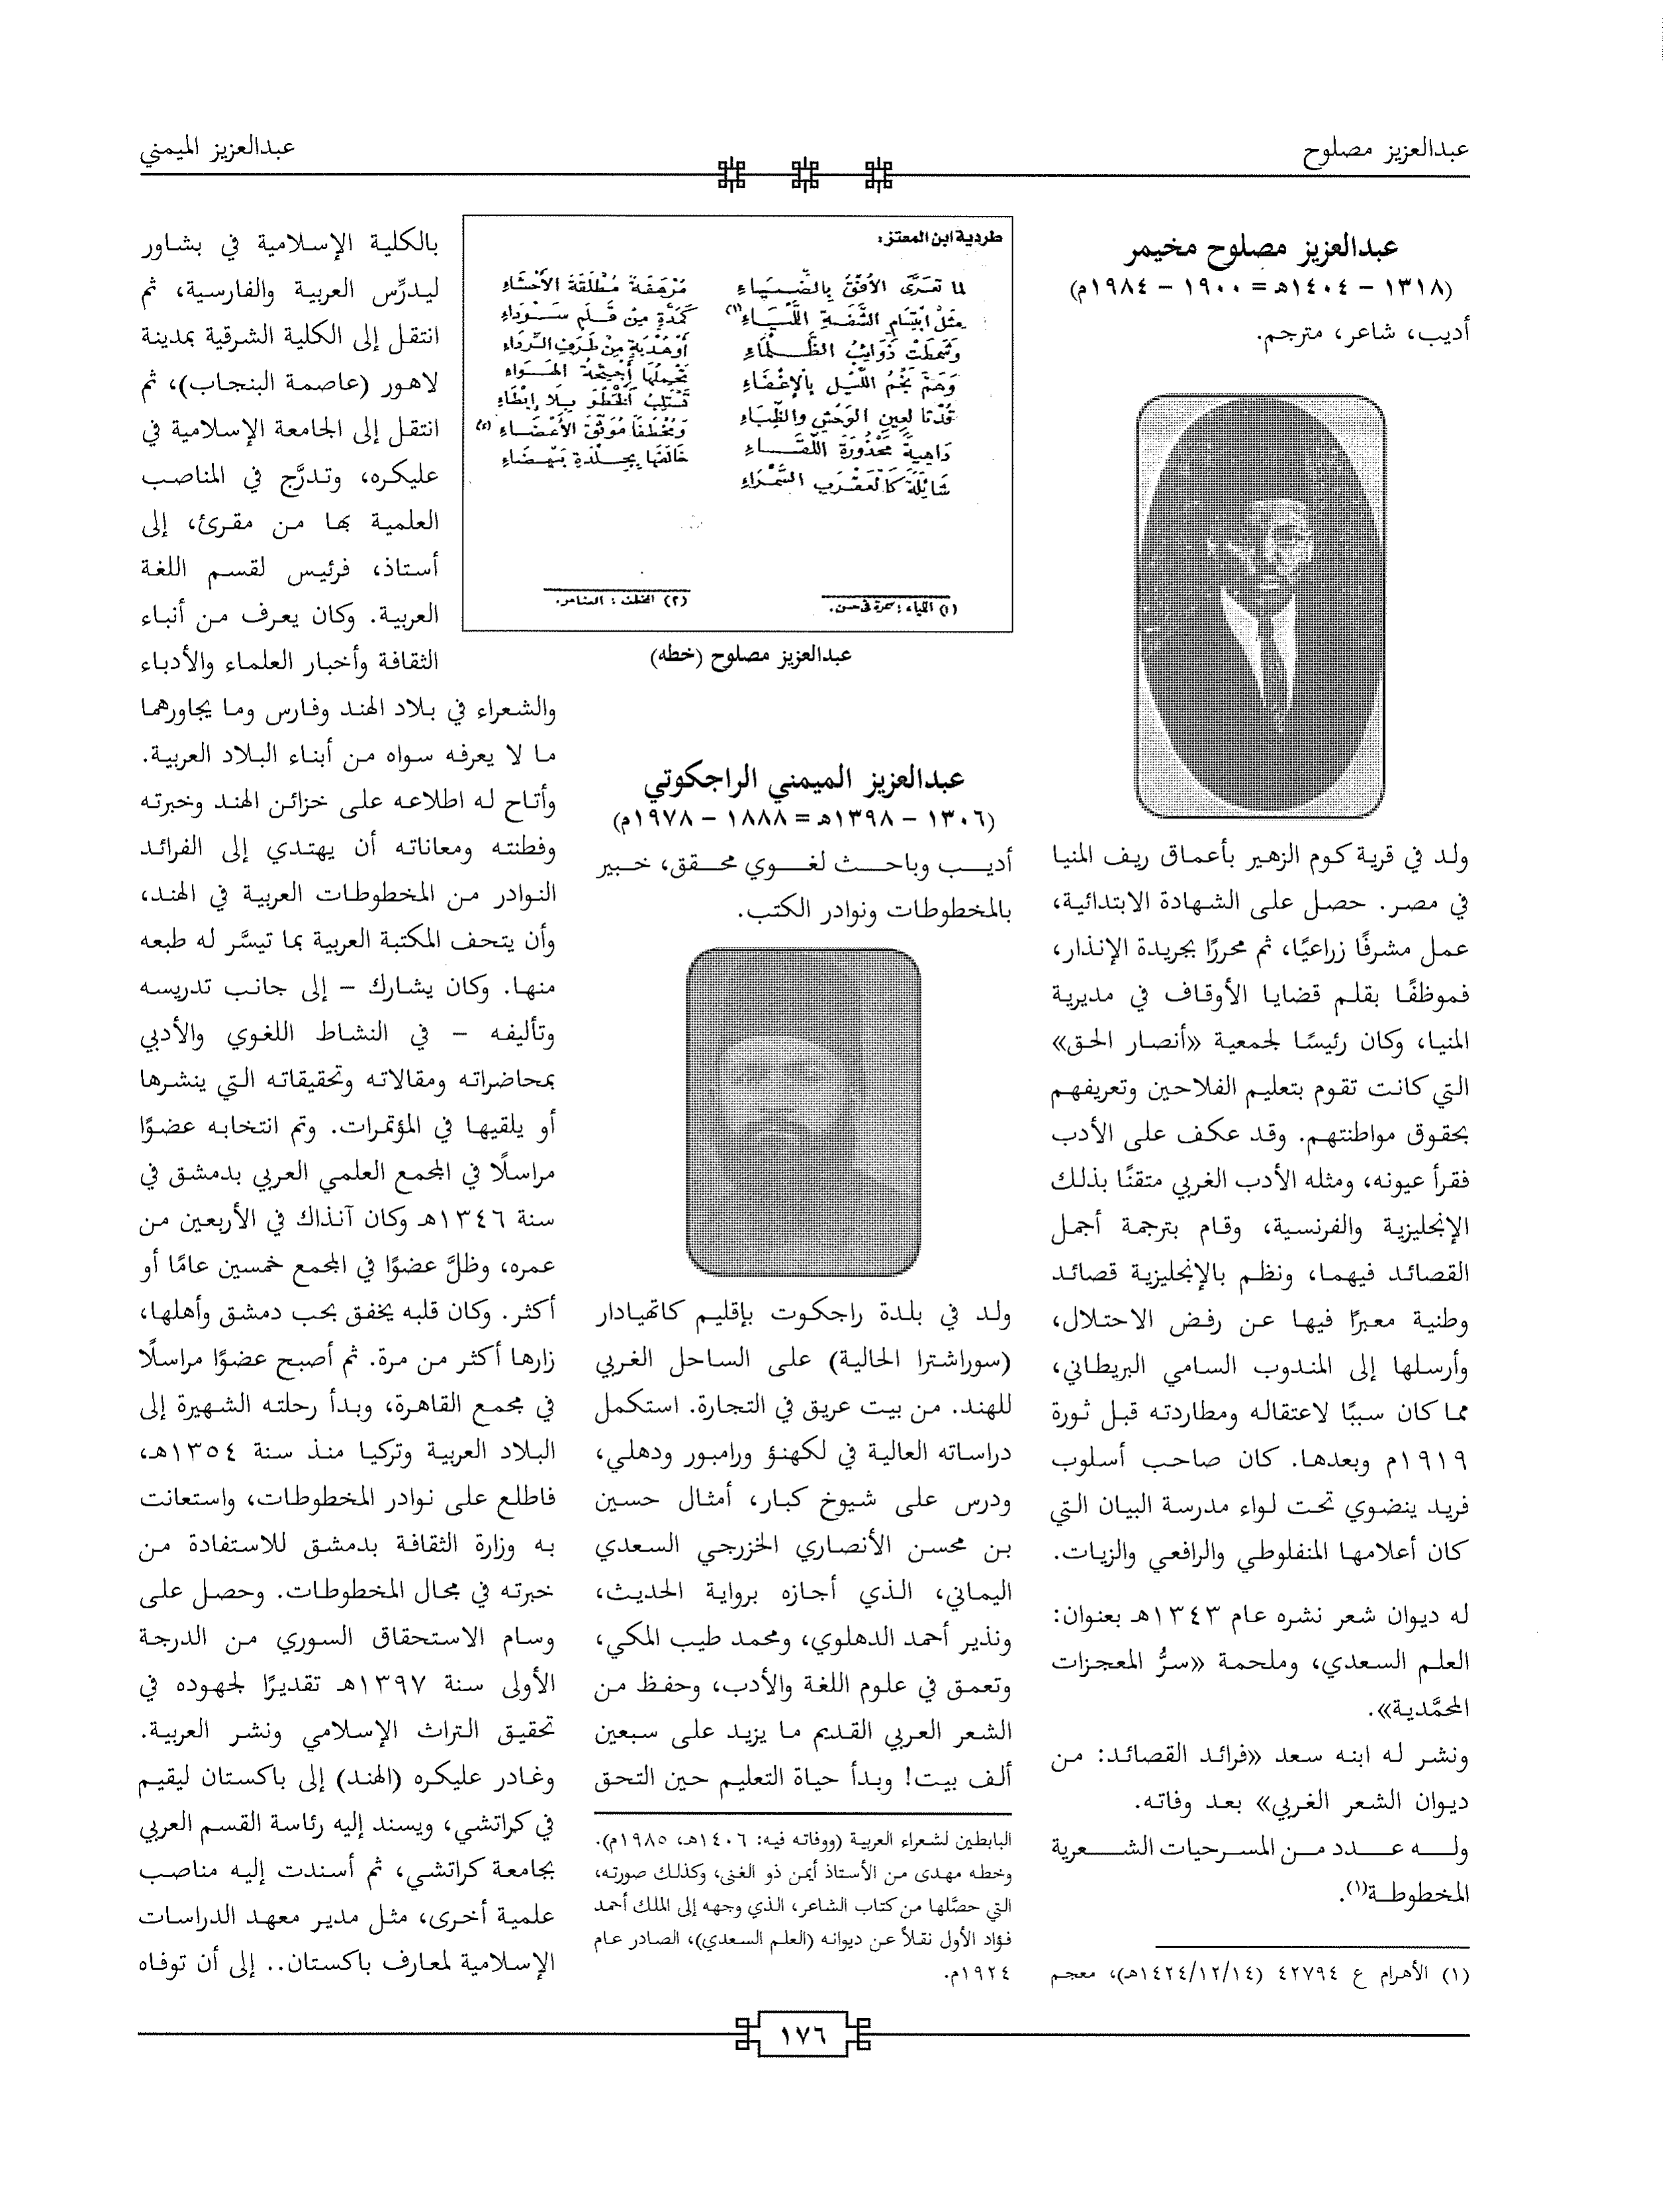 عبدالعزيز مصلوح
عبدالعزيز الميمني
عبدالعزيز مصلوح مخيمر
(١٣١٨ - ١٤٠٤هـ = ١٩٠٠ - ١٩٨٤م)
أديب، شاعر، مترجم.
ولد في قرية كوم الزهير بأعماق ريف المنيا
في مصر. حصل على الشهادة الابتدائية،
عمل مشرفًا زراعيًا، ثم محررًا بجريدة الإنذار،
فموظفًا بقلم قضايا الأوقاف في مديرية
المنيا، وكان رئيسًا لجمعية «أنصار الحق»
التي كانت تقوم بتعليم الفلاحين وتعريفهم
بحقوق مواطنتهم. وقد عكف على الأدب
فقرأ عيونه، ومثله الأدب الغربي متقنًا بذلك
الإنجليزية والفرنسية، وقام بترجمة أجمل
القصائد فيهما، ونظم بالإنجليزية قصائد
وطنية معبرًا فيها عن رفض الاحتلال،
وأرسلها إلى المندوب السامي البريطاني،
مما كان سببًا لاعتقاله ومطاردته قبل ثورة
١٩١٩م وبعدها. كان صاحب أسلوب
فريد ينضوي تحت لواء مدرسة البيان التي
كان أعلامها المنفلوطي والرافعي والزيات.
له ديوان شعر نشره عام ١٣٤٣هـ بعنوان:
العلم السعدي، وملحمة «سرُّ المعجزات
المحمَّدية».
ونشر له ابنه سعد «فرائد القصائد: من
ديوان الشعر الغربي» بعد وفاته.
وله عدد من المسرحيات الشعرية
المخطوطة(١).
(١) الأهرام ع ٤٢٧٩٤ (١٤٢٤/١٢/١٤هـ)، معجم
طردية ابن المعتز:
لما تعَرَّى الأفقُ بالضّياءِ
مثلُ ابتسامِ الشَّفةِ اللَّمياءِ(١)
وشمطتْ ذوائبُ الظَّلماءِ
وهمَّ نجمُ اللَّيلِ بالإغفاءِ
قدنا لعينِ الوحشِ والظِّباءِ
داهيةً محذورةَ اللّقاءِ
شائلةً كالعقربِ السَّمراءِ
مُرْهَفَةً مُطْلَقَةَ الأحشاءِ
كمَدَّةٍ مِن قَلَمٍ سَوْداءِ
أو هُدْبَةٍ مِن طَرَفِ الرِّداءِ
تحملها أجنحةُ الهواءِ
تستلبُ الخطوَ بلا إبطاءِ
ومُخطَفًا موثَّقَ الأعضاءِ (٢)
خالفها بجلدةٍ بيضاءِ
(١) اللمياء: سمرة في حسن.
(٢) المخطف: الضامر.
عبدالعزيز مصلوح (خطه)
عبدالعزيز الميمني الراجكوتي
(١٣٠٦ - ١٣٩٨هـ = ١٨٨٨ - ١٩٧٨م)
أديب وباحث لغوي محقق، خبير
بالمخطوطات ونوادر الكتب.
ولد في بلدة راجكوت بإقليم كاتهيادار
(سوراشترا الحالية) على الساحل الغربي
للهند. من بيت عريق في التجارة. استكمل
دراساته العالية في لكهنؤ ورامبور ودهلي،
ودرس على شيوخ كبار، أمثال حسين
بن محسن الأنصاري الخزرجي السعدي
اليماني، الذي أجازه برواية الحديث،
ونذير أحمد الدهلوي، ومحمد طيب المكي،
وتعمق في علوم اللغة والأدب، وحفظ من
الشعر العربي القديم ما يزيد على سبعين
ألف بيت! وبدأ حياة التعليم حين التحق
البابطين لشعراء العربية (ووفاته فيه: ١٤٠٦هـ، ١٩٨٥م).
وخطه مهدى من الأستاذ أيمن ذو الغنى، وكذلك صورته،
التي حصَّلها من كتاب الشاعر، الذي وجهه إلى الملك أحمد
فؤاد الأول نقلاً عن ديوانه (العلم السعدي)، الصادر عام
١٩٢٤م.
بالكلية الإسلامية في بشاور
ليدرِّس العربية والفارسية، ثم
انتقل إلى الكلية الشرقية بمدينة
لاهور (عاصمة البنجاب)، ثم
انتقل إلى الجامعة الإسلامية في
عليكره، وتدرَّج في المناصب
العلمية بها من مقرئ، إلى
أستاذ، فرئيس لقسم اللغة
العربية. وكان يعرف من أنباء
الثقافة وأخبار العلماء والأدباء
والشعراء في بلاد الهند وفارس وما يجاورهما
ما لا يعرفه سواه من أبناء البلاد العربية.
وأتاح له اطلاعه على خزائن الهند وخبرته
وفطنته ومعاناته أن يهتدي إلى الفرائد
النوادر من المخطوطات العربية في الهند،
وأن يتحف المكتبة العربية بما تيسَّر له طبعه
منها. وكان يشارك - إلى جانب تدريسه
وتأليفه - في النشاط اللغوي والأدبي
بمحاضراته ومقالاته وتحقيقاته التي ينشرها
أو يلقيها في المؤتمرات. وتم انتخابه عضوًا
مراسلًا في المجمع العلمي العربي بدمشق في
سنة ١٣٤٦هـ وكان آنذاك في الأربعين من
عمره، وظلَّ عضوًا في المجمع خمسين عامًا أو
أكثر. وكان قلبه يخفق بحب دمشق وأهلها،
زارها أكثر من مرة. ثم أصبح عضوًا مراسلًا
في مجمع القاهرة، وبدأ رحلته الشهيرة إلى
البلاد العربية وتركيا منذ سنة ١٣٥٤هـ،
فاطلع على نوادر المخطوطات، واستعانت
به وزارة الثقافة بدمشق للاستفادة من
خبرته في مجال المخطوطات. وحصل على
وسام الاستحقاق السوري من الدرجة
الأولى سنة ١٣٩٧هـ تقديرًا لجهوده في
تحقيق التراث الإسلامي ونشر العربية.
وغادر عليكره (الهند) إلى باكستان ليقيم
في كراتشي، ويسند إليه رئاسة القسم العربي
بجامعة كراتشي، ثم أسندت إليه مناصب
علمية أخرى، مثل مدير معهد الدراسات
الإسلامية لمعارف باكستان.. إلى أن توفاه
١٧٦